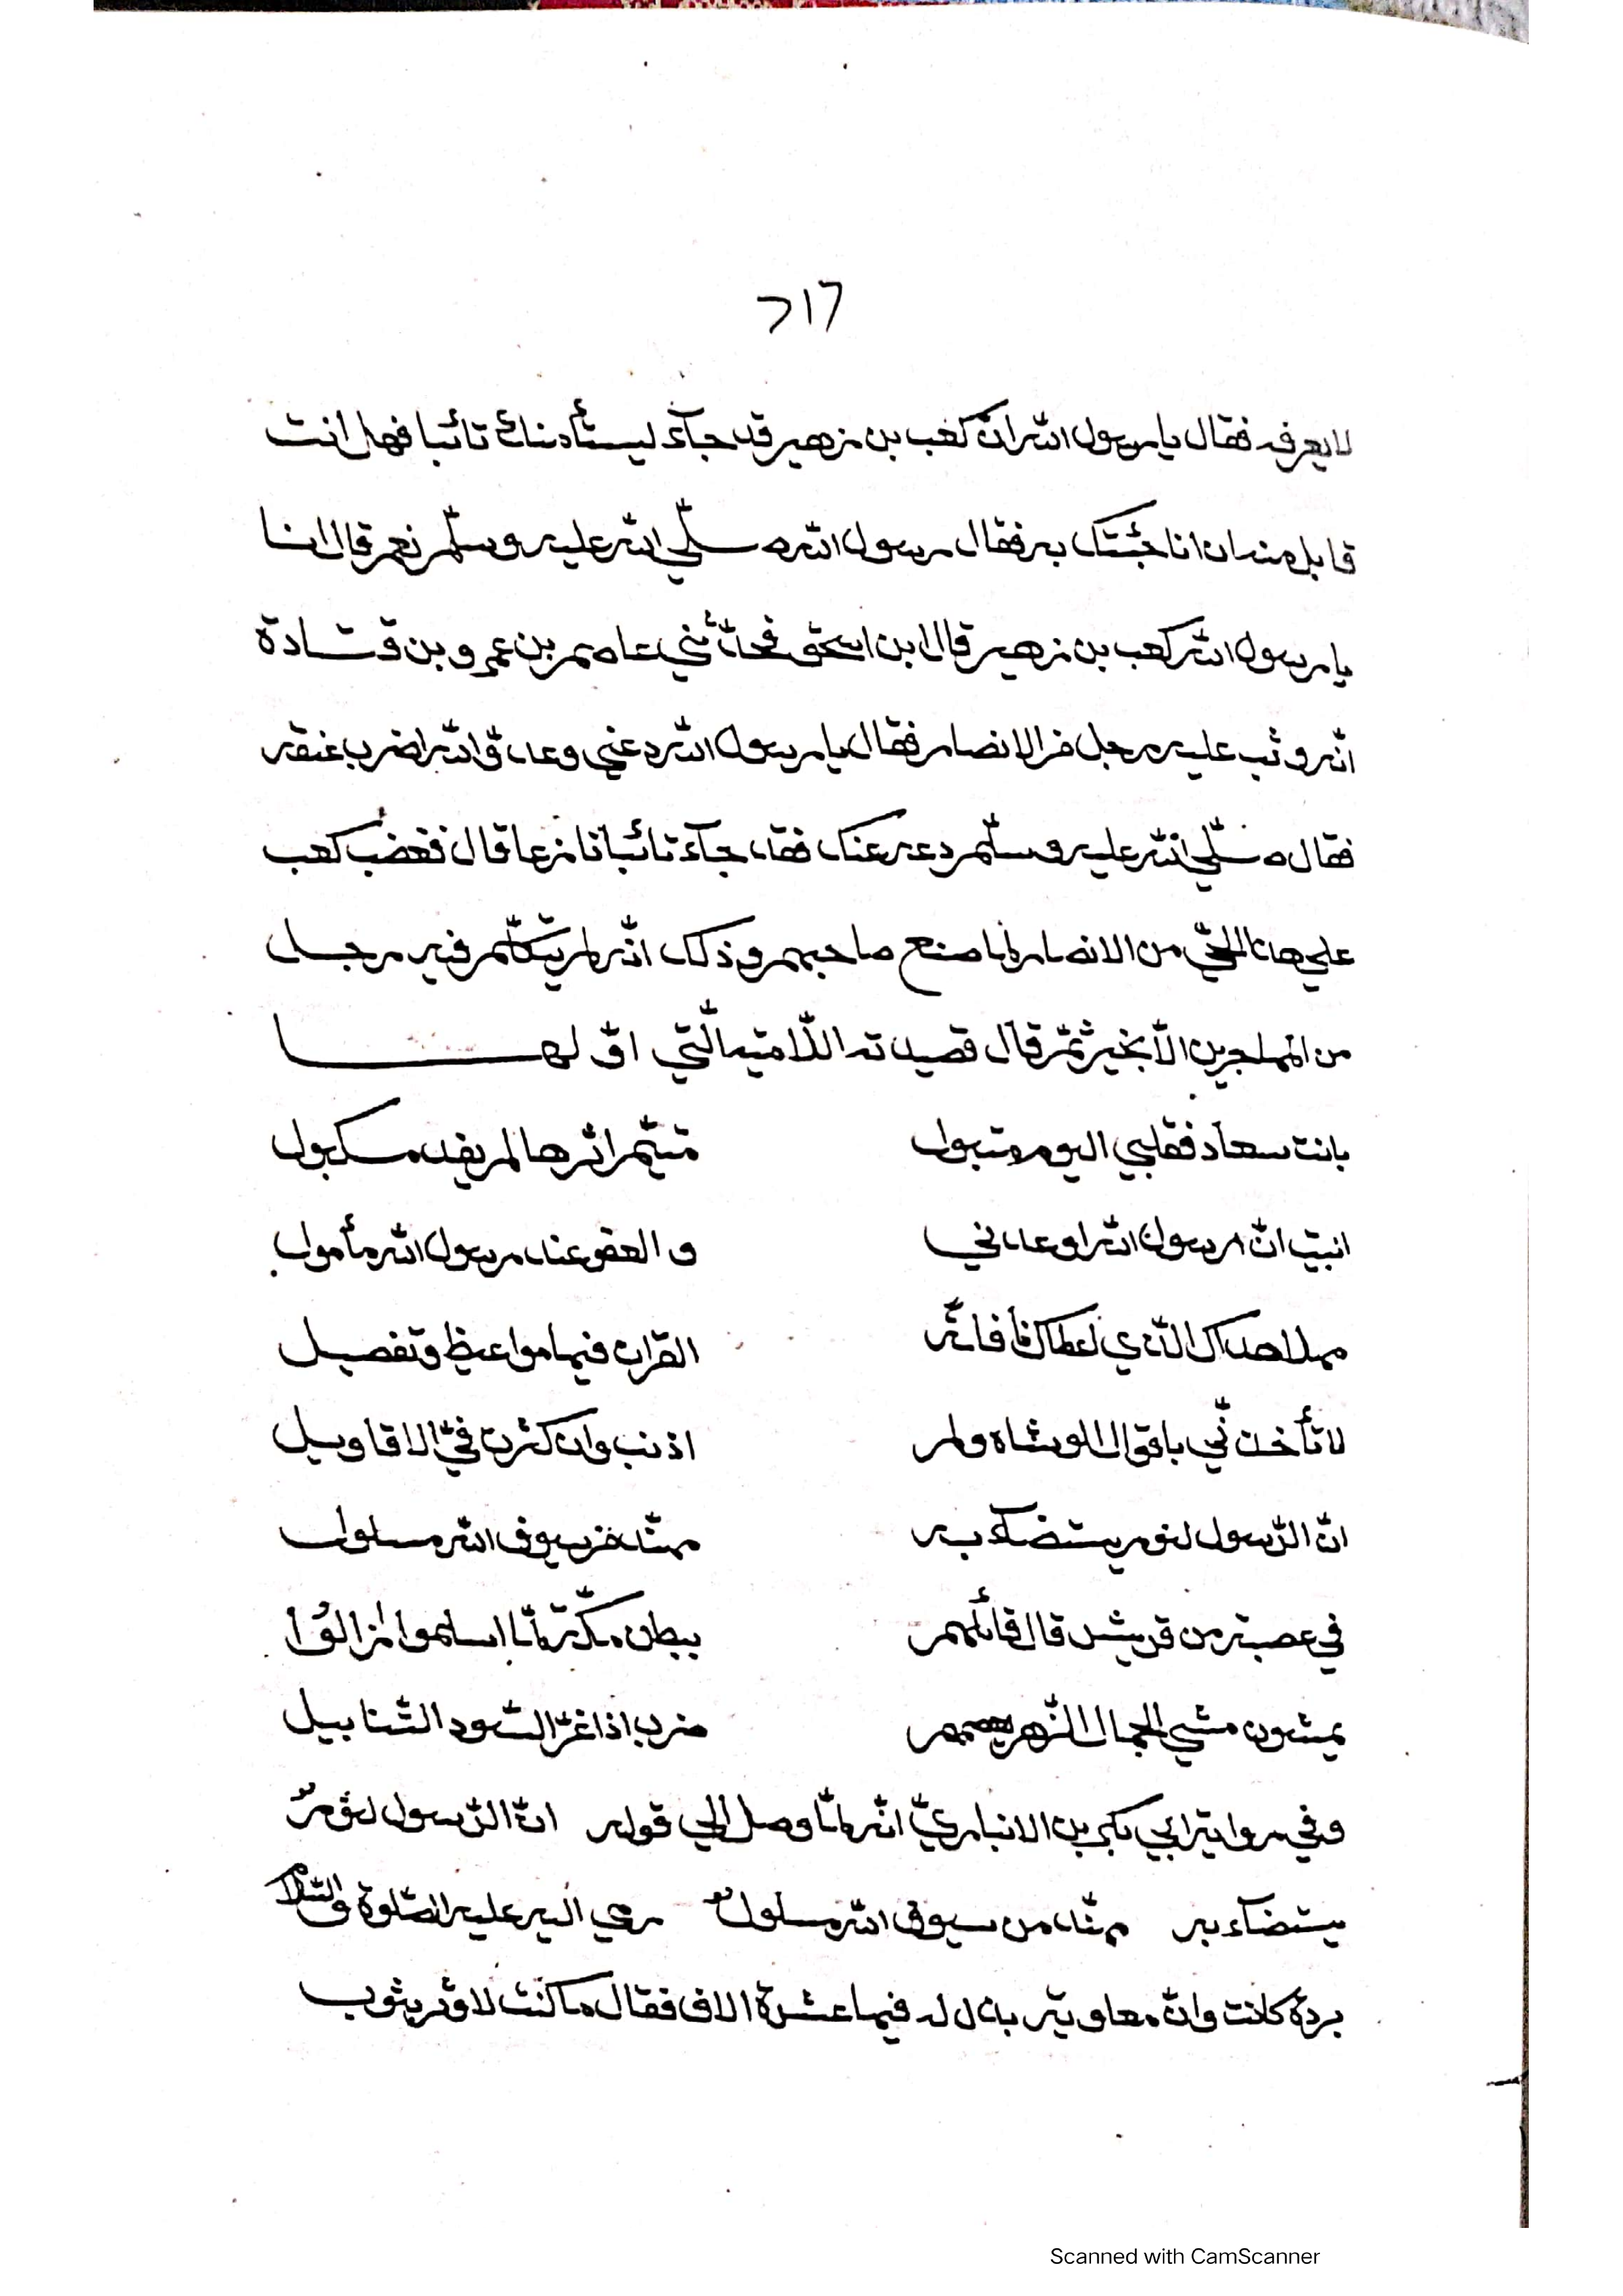 ٢١٦
لا يعرفه فقال يا رسول الله ان كعب بن زهير قد جآء ليستأمنك تائبا فهل انت
قابل منه ان انا جئتك به فقال رسول الله صلّي الله عليه وسلّم نعم قال انا
يا رسول الله كعب بن زهير قال ابن اسحٰق فحدّثني عاصم بن عمرو بن قتادة
انّه وثب عليه رجل من الانصار فقال يا رسول الله دعني وعدوّ الله اضرب عنقه
فقال صلّي الله عليه وسلّم دعه عنك فقد جآء تائبا نازعا قال فغضب كعب
علي هذا الحيّ من الانصار لما صنع صاحبهم وذلك انّه لم يتكلّم فيه رجل
من المهاجرين الاّ بخير ثمّ قال قصيدته اللاّميه الّتي اوّلها
بانت سعاد فقلبي اليوم متبول متيّم اثرها لم يفد مكبول
انبيت انّ رسول الله اوعدني و العفو عند رسول الله مأمول
مهلا هداك الّذي اعطاك نافلة القران فيها مواعيظ وتفصيل
لا تأخذنّي باقوال الوشاه ولم اذنب وان كثرت فيّ الاقاويل
انّ الرّسول لنور يستضآء به مهنّد من سيوف الله مسلول
في عصبة من قريش قال قائلهم ببطن مكّة لمّا اسلموا زالوا
يمشون مشي الجمال الزّهر يعصمهم ضرب اذا غرّ السّود التّنابيل
وفي رواية ابي بكر بن الانباريّ انّه لمّا وصل الي قوله انّ الرّسول لنورٌ
يستضآء به مهنّد من سيوف الله مسلولٌ رمي اليه عليه الصّلوة والسّلام
بردة كانت وانّ معاوية بذل له فيها عشرة الاف فقال ما كنت لاوثر بثوب
Scanned with CamScanner